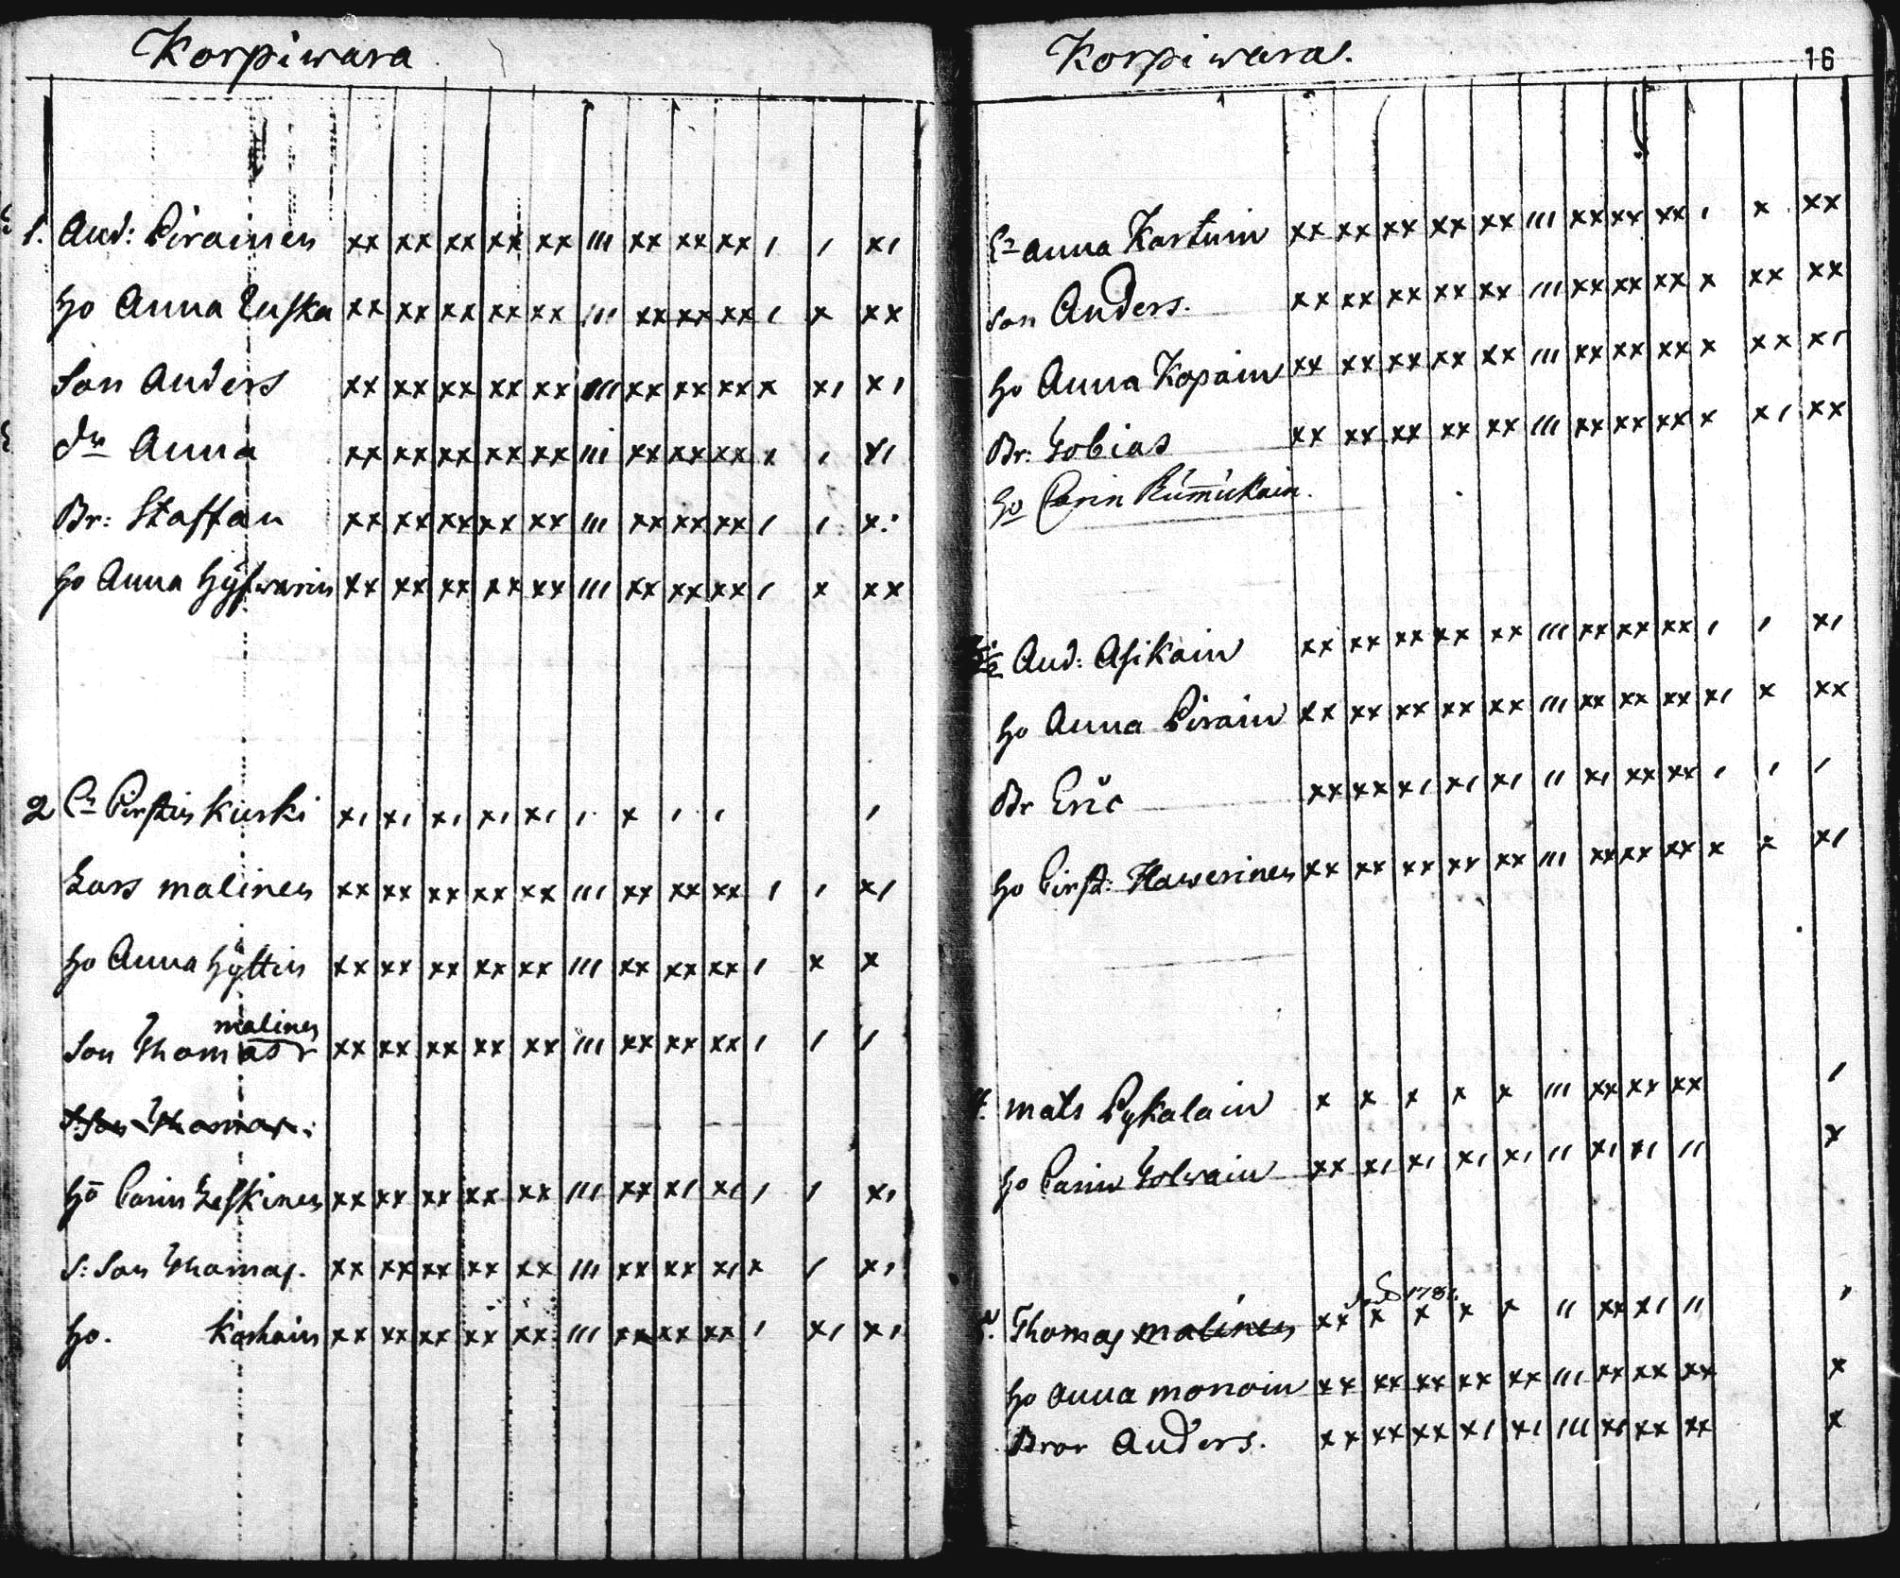 Korpiwara
1. And: Piramen xx xx xx xx xx ııı xx xx xx ı ı xı
ho Anna xx xx xx xx xx ııı xx xx xx ı x xx
Son Anders xx xx xx xx xx ııı xx xx xx x xı xı
dr Anna xx xx xx xx xx ııı xx xx xx x ı xı
Br: Staffan xx xx xx xx xx ııı xx xx xx ı ı x
ho Anna xx xx xx xx xx ııı xx xx xx ı x xx
2 xı xı xı xı xı ı x ı ı ı
Lars malinen xx xx xx xx xx ııı xx xx xx ı ı xı
ho Anna Hyttin xx xx xx xx xx ııı xx xx xx ı x x
malinen
Son Thomas xx xx xx xx xx ııı xx xx xx ı ı ı
S: Son Thomas:
ho Carin Leskinen xx xx xx xx xx ııı xx xı xı ı ı xı
S: Son Thomas. xx xx xx xx xx ııı xx xx xı x ı xı
ho. Kashain xx xx xx xx xx ııı xx xx xx ı xı xı
Korpiwara.
16
Anna xx xx xx xx xx ııı xx xx xx ı x xx
son Anders. xx xx xx xx xx ııı xx xx xx x xx xx
ho Anna Kopain xx xx xx xx xx ııı xx xx xx x xx xı
Br: Tobias xx xx xx xx xx ııı xx xx xx x xı xx
ho Carin
And: Asikain xx xx xx xx xx ııı xx xx xx ı ı xı
ho Anna Pirain xx xx xx xx xx ııı xx xx xx xı x xx
Br Eric xx xx xı xı xı ıı xı xx xx ı ı ı
ho Cirst: Hawerinen xx xx xx xx xx ııı xx xx xx x x xı
4. mats Pykalain x x x x x ııı xx xx xx ı
ho Carin Tolwain xx xı xı xı xı ıı xı xı ıı x
5. Thomas malinen xx x x x x ıı xx xı ıı ı
ho anna monoin xx xx xx xx xx ııı xx xx xx x
Bror Anders. xx xx xx xı xı ııı xı xx xx x